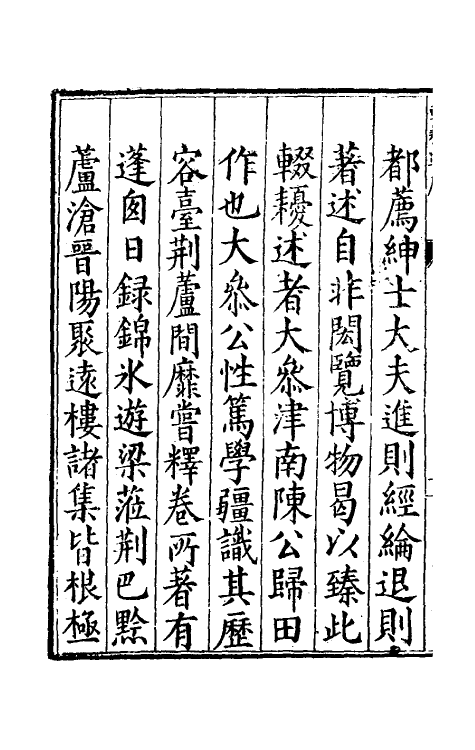 都薦紳士大夫進則經綸退則
著述自非閎覽博物曷以臻此
輟耰述者大叅津南陳公歸田
作也大叅公性篤學彊識其歷
容臺荆蘆間靡嘗釋卷所著有
蓬囱日録錦氷遊梁蒞荆巴黔
蘆滄晉陽聚遠樓諸集皆根極